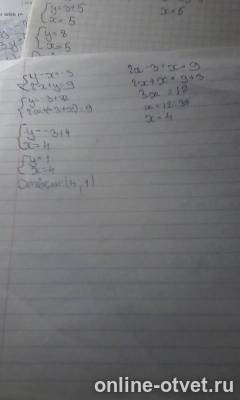 {y=3+5
x=5
{y=8
x=5
x=5
{y-x=-3
2x+y=9
{y=-3+x
2x+(-3+x)=9
{y=-3+4
x=4
{y=1
x=4
Ответ:(4;1)
2x-3+x=9
2x+x=9+3
3x=12
x=12:3
x=4
online-otvet.ru